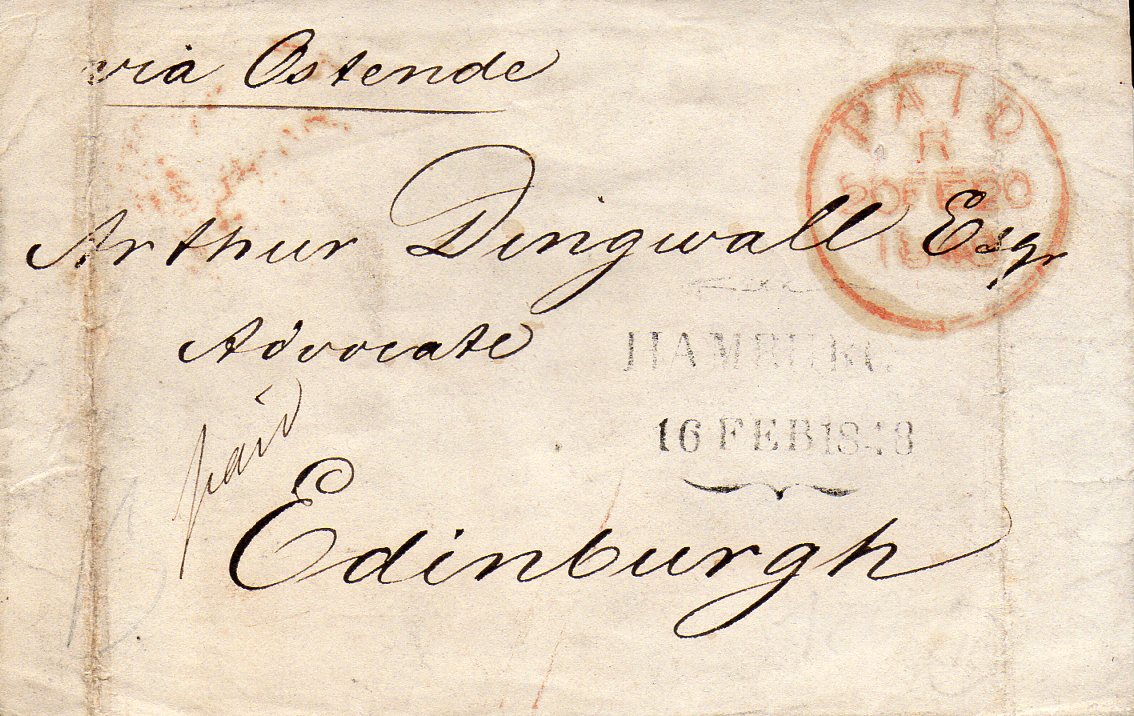 via Ostende
PAID
R
20 FE 20
Arthur Dingwall Esqr
Advocate
HAMBURG.
16 FEB 1848
paid
Edinburgh